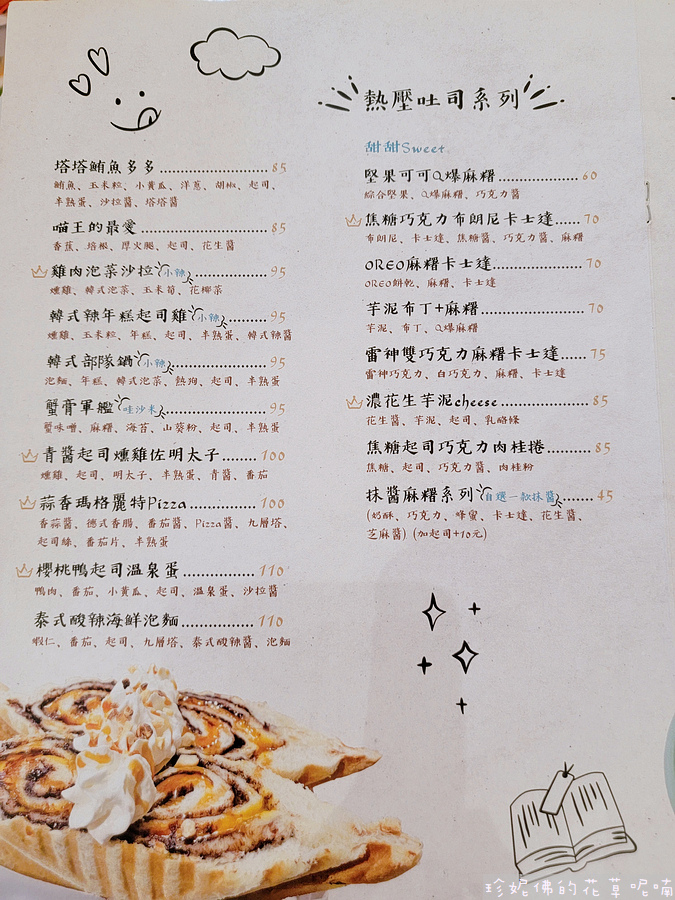 塔塔鮪魚多多 85
鮪魚、玉米粒、小黃瓜、洋蔥、胡椒、起司、
半熟蛋、沙拉醬、塔塔醬
喵王的最愛 85
香蕉、培根、厚火腿、起司、花生醬
雞肉泡菜沙拉 小辣 95
燻雞、韓式泡菜、玉米筍、花椰菜
韓式辣年糕起司雞 小辣 95
燻雞、玉米粒、年糕、起司、半熟蛋、韓式辣醬
韓式部隊鍋 小辣 95
泡麵、年糕、韓式泡菜、熱狗、起司、半熟蛋
蟹膏軍艦 哇沙米 95
蟹味噌、麻糬、海苔、山葵粉、起司、半熟蛋
青醬起司燻雞佐明太子 100
燻雞、起司、明太子、半熟蛋、青醬、番茄
蒜香瑪格麗特Pizza 100
香蒜醬、德式香腸、番茄醬、Pizza醬、九層塔、
起司絲、番茄片、半熟蛋
櫻桃鴨起司溫泉蛋 110
鴨肉、番茄、小黃瓜、起司、溫泉蛋、沙拉醬
泰式酸辣海鮮泡麵 110
蝦仁、番茄、起司、九層塔、泰式酸辣醬、泡麵
熱壓吐司系列
甜甜Sweet
堅果可可Q爆麻糬 60
綜合堅果、Q爆麻糬、巧克力醬
焦糖巧克力布朗尼卡士達 70
布朗尼、卡士達、焦糖醬、巧克力醬、麻糬
OREO麻糬卡士達 70
OREO餅乾、麻糬、卡士達
芋泥布丁+麻糬 70
芋泥、布丁、Q爆麻糬
雷神雙巧克力麻糬卡士達 75
雷神巧克力、白巧克力、麻糬、卡士達
濃花生芋泥cheese 85
花生醬、芋泥、起司、乳酪條
焦糖起司巧克力肉桂捲 85
焦糖、起司、巧克力醬、肉桂粉
抹醬麻糬系列 自選一款抹醬 45
(奶酥、巧克力、蜂蜜、卡士達、花生醬、
芝麻醬) (加起司+10元)
珍妮佛的花草呢喃